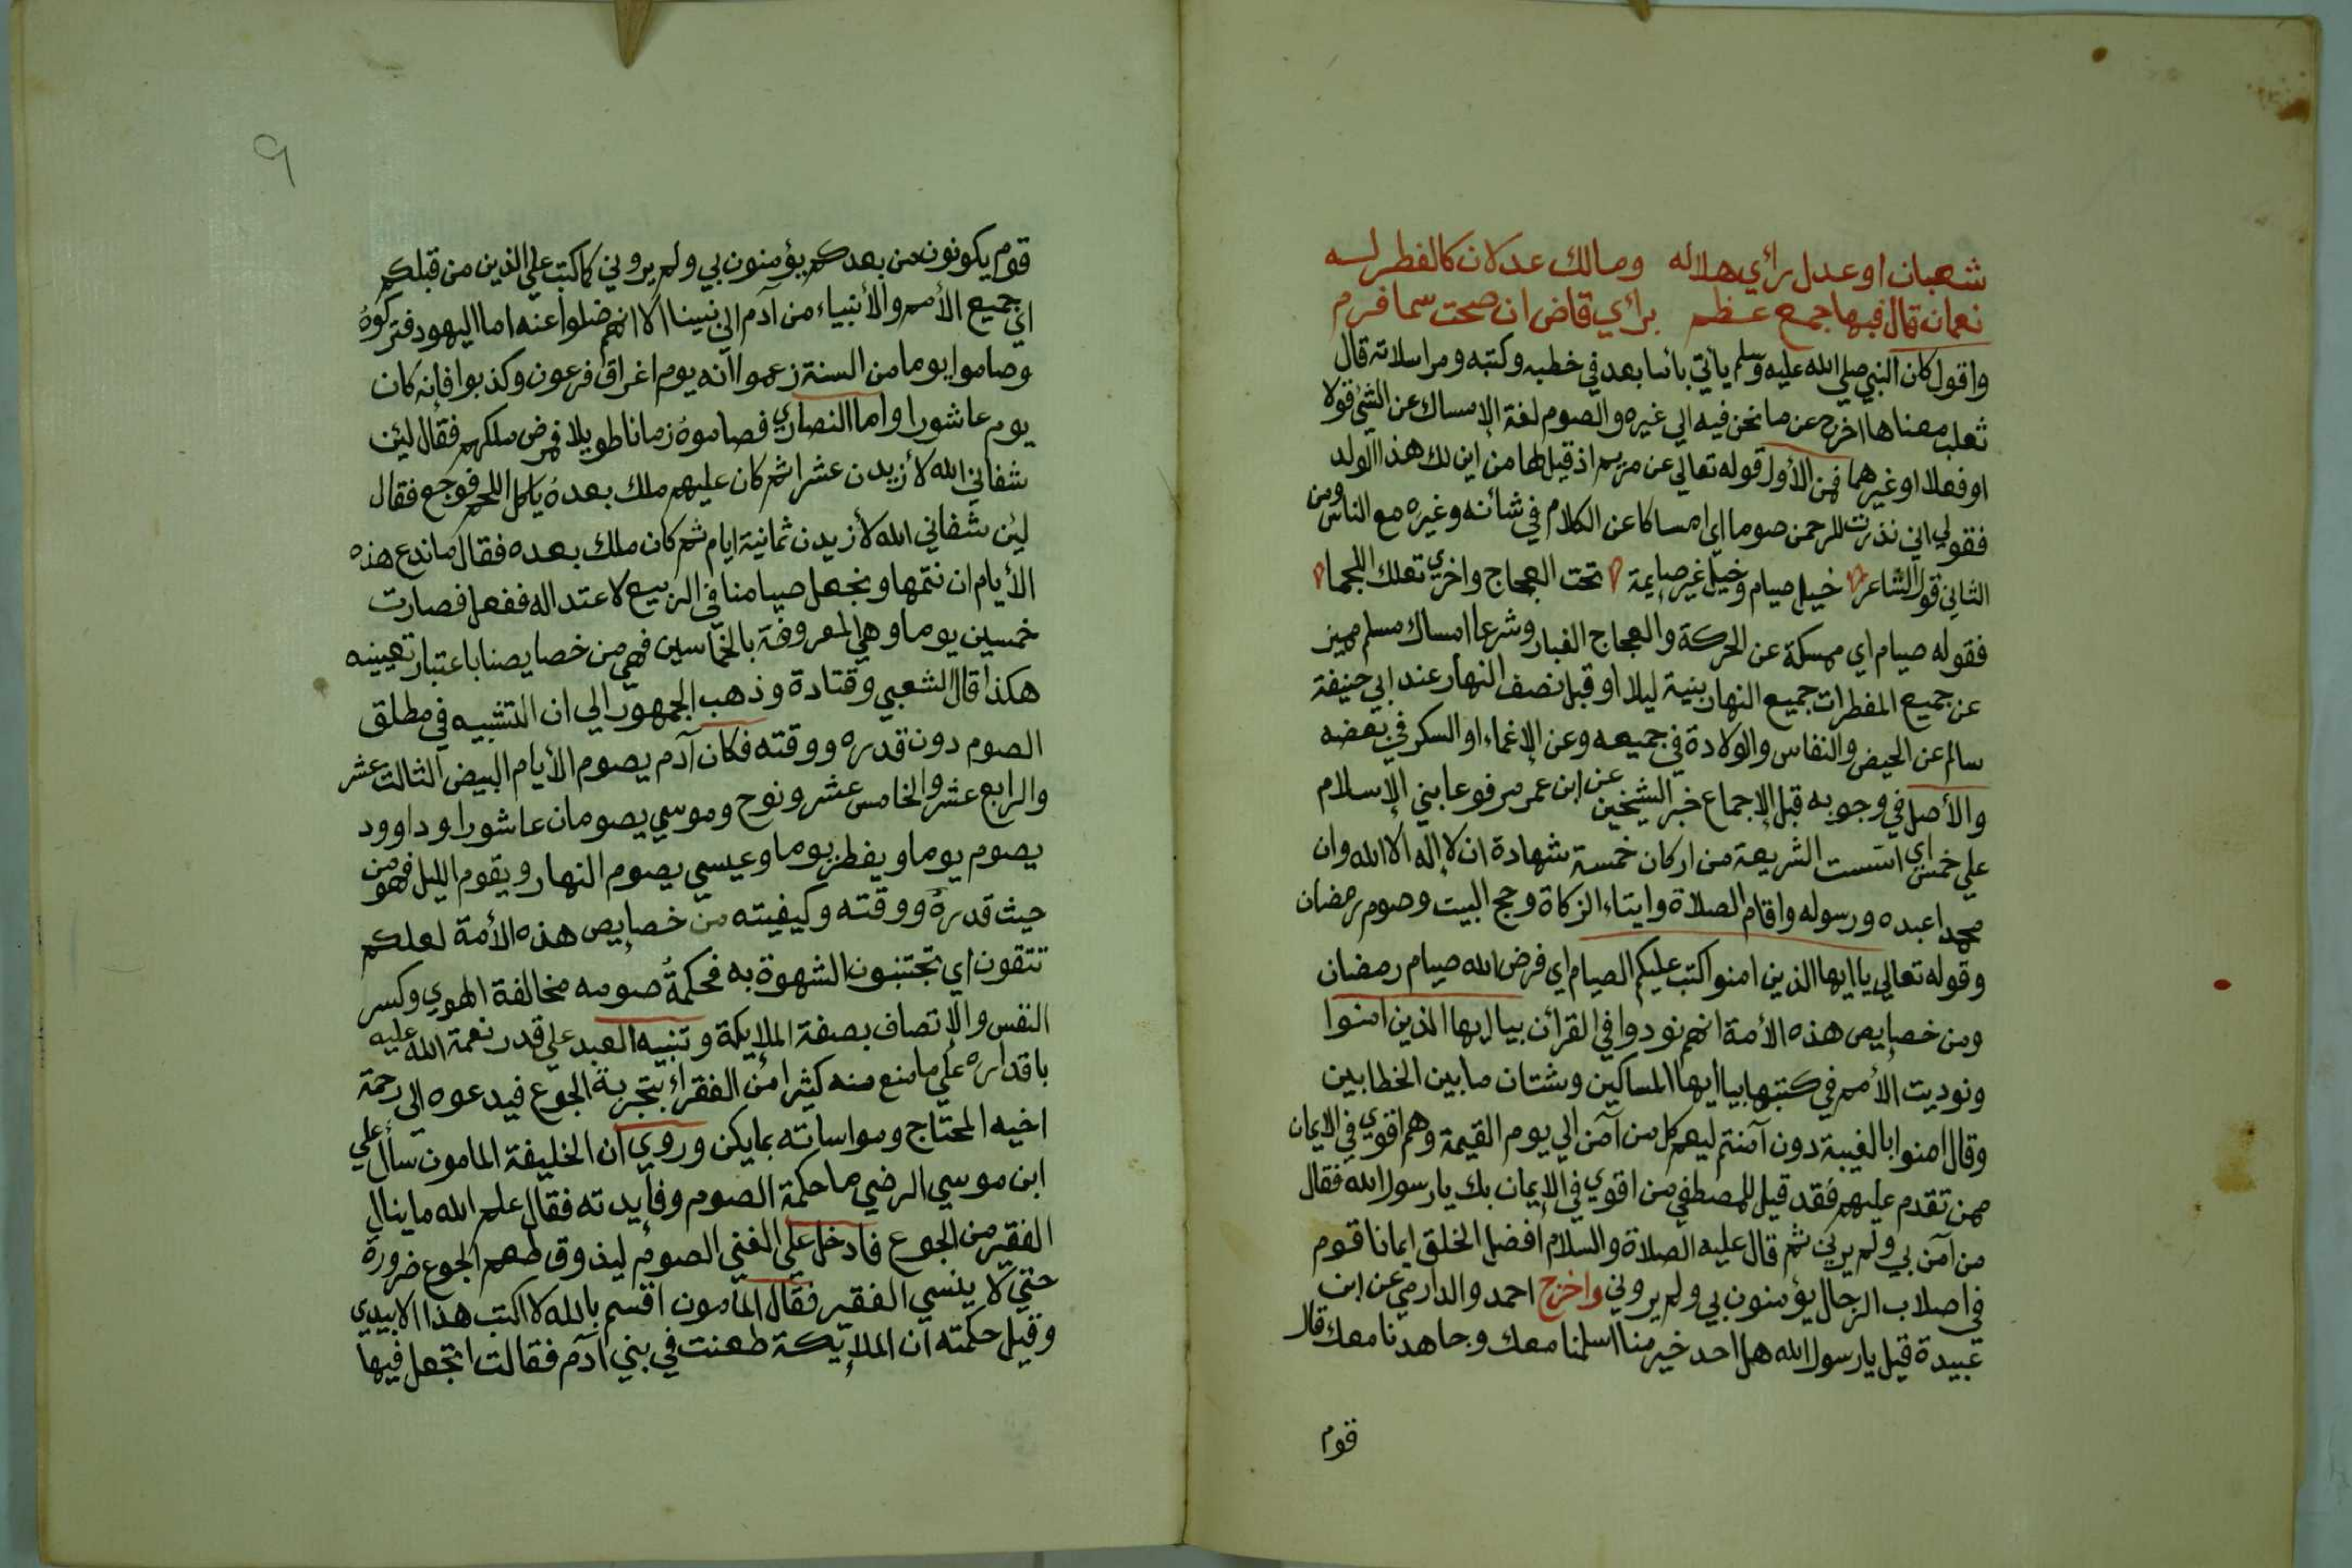 شعبان او عدل رأي هلاله ومالك عدلان كالفطر لسه
نعمان قال فيها جمع عظم برأي قاض ان صحت سما فرم
واقول كان النبي صلي الله عليه وسلم يأتي بأما بعد في خطبه وكتبه ومراسلاته قال
ثعلب معناها اخرج عن ما نحن فيه الي غيره والصوم لغة الإمساك عن الشئ قولا
او فعلا او غيرهما فمن الأول قوله تعالي عن مريم اذ قيل لها من اين لك هذا الولد
فقولي اني نذرت للرحمن صوما اي امساكا عن الكلام في شأنه وغيره مع الناس ومن
الثاني قول الشاعر خيل صيام وخيل غير صايمة تحت العجاج واخري تعلك اللجما
فقوله صيام اي ممسكة عن الحركة والعجاج الغبار وشرعا امساك مسلم مميز
عن جميع المفطرات جميع النهار بنية ليلا او قبل نصف النهار عند ابي حنيفة
سالم عن الحيض والنفاس والولادة في جميعه وعن الإغماء او السكر في بعضه
والأصل في وجوبه قبل الإجماع خبر الشيخين عن ابن عمر مرفوعا بني الإسلام
علي خمس اي اسست الشريعة من اركان خمسة شهادة ان لا إله الا الله وان
محمدا عبده ورسوله واقام الصلاة وايتاء الزكاة وحج البيت وصوم رمضان
وقوله تعالي يا ايها الذين امنوا كتب عليكم الصيام اي فرض الله صيام رمضان
ومن خصايص هذه الأمة انهم نودوا في القرأن بيا ايها الذين امنوا
ونوديت الأمم في كتبها بيا ايها المساكين وشتان ما بين الخطابين
وقال امنوا بالغيبة دون آمنتم ليعم كل من آمن الي يوم القيمة وهم اقوي في الايمان
ممن تقدم عليهم فقد قيل للمصطفي من اقوي في الإيمان بك يا رسول الله فقال
من آمن بي ولم يرني ثم قال عليه الصلاة والسلام افضل الخلق ايمانا قوم
في اصلاب الرجال يؤمنون بي ولم يروني واخرج احمد والدارمي عن ابن
عبيدة قيل يا رسول الله هل احد خير منا اسلمنا معك وجاهدنا معك قال
قوم
٩
قوم يكونون من بعدكم يؤمنون بي ولم يروني كما كتب علي الذين من قبلكم
اي جميع الأمم والأنبياء من آدم الي نبينا الا انهم ضلوا عنه اما اليهود فتركوه
وصاموا يوما من السنة زعموا انه يوم اغراق فرعون وكذبوا فإنه كان
يوم عاشورا واما النصاري فصاموه زمانا طويلا فمرض ملكهم فقال لئن
شفاني الله لأزيدن عشرا ثم كان عليهم ملك بعده يأكل اللحم فوجع فقال
لئن شفاني الله لأزيدن ثمانية ايام ثم كان ملك بعده فقال ما ندع هذه
الأيام ان نتمها ونجعل صيامنا في الربيع لاعتداله ففعل فصارت
خمسين يوما وهي المعروفة بالخماسين فهي من خصايصنا باعتبار تعيينه
هكذا قال الشعبي وقتادة وذهب الجمهور الي ان التشبيه في مطلق
الصوم دون قدره ووقته فكان آدم يصوم الأيام البيض الثالث عشر
والرابع عشر والخامس عشر ونوح وموسي يصومان عاشورا وداوود
يصوم يوما ويفطر يوما وعيسي يصوم النهار ويقوم الليل فهو من
حيث قدره ووقته وكيفيته من خصايص هذه الأمة لعلكم
تتقون اي تجتنبون الشهوة به فحكمة صومه مخالفة الهوي وكسر
النفس والإتصاف بصفة الملايكة وتنبيه العبد علي قدر نعمة الله عليه
باقداره علي ما منع منه كثيرا من الفقراء بتجربة الجوع فيدعوه الي رحمة
اخيه المحتاج ومواساته بما يكن وروي ان الخليفة المامون سأل علي
ابن موسي الرضي ما حكمة الصوم وفأيدته فقال علم الله ما ينال
الفقير من الجوع فادخل علي الغني الصوم ليذوق طعم الجوع ضرورة
حتي لا ينسي الفقير فقال المأمون اقسم بالله لا اكتب هذا الا بيدي
وقيل حكمته ان الملايكة طعنت في بني آدم فقالت اتجعل فيها